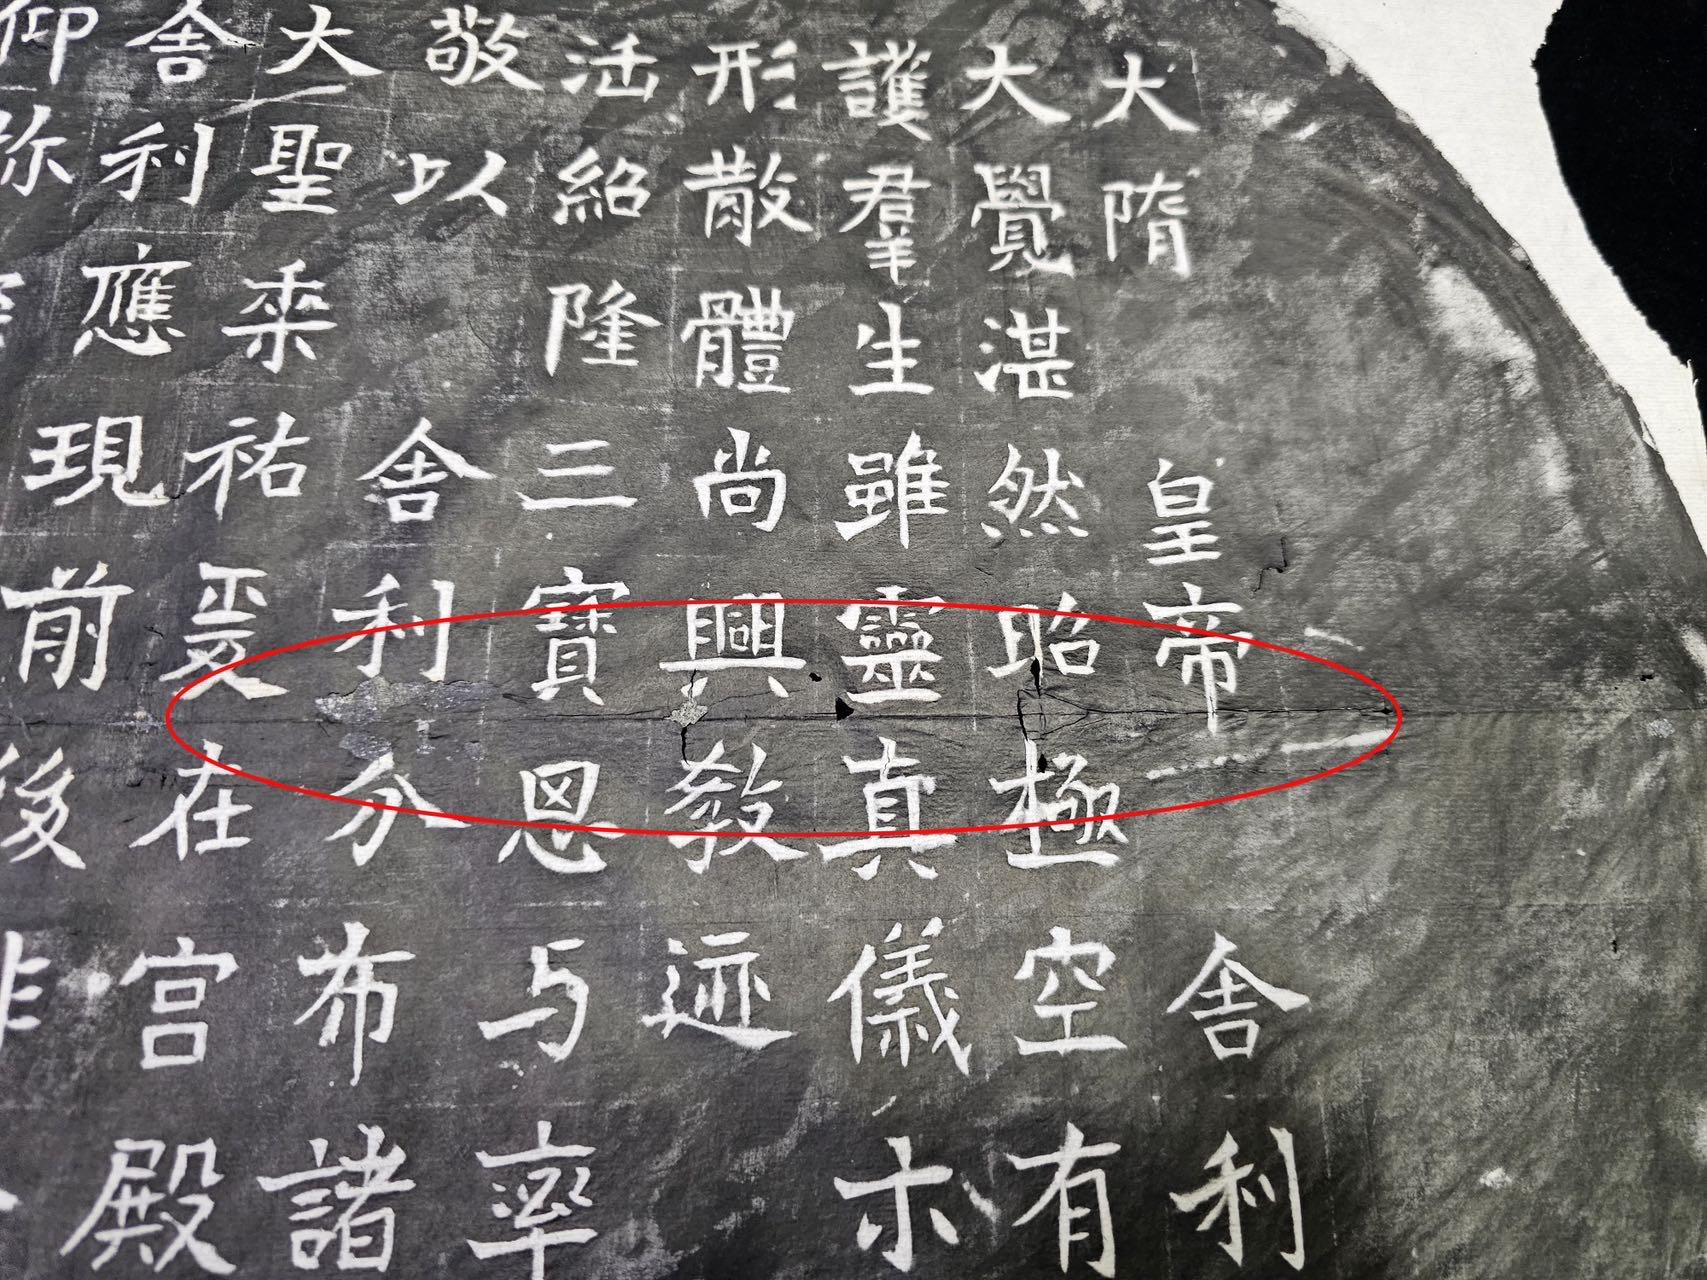 大隋皇帝舍利
大覺湛然昭極空有
護羣生雖靈真儀
形散體尚興教迹
法紹隆三寶恩与率
敬以舍利分布諸
大聖垂祐爰在宮殿
舍利應現前後非
仰弥